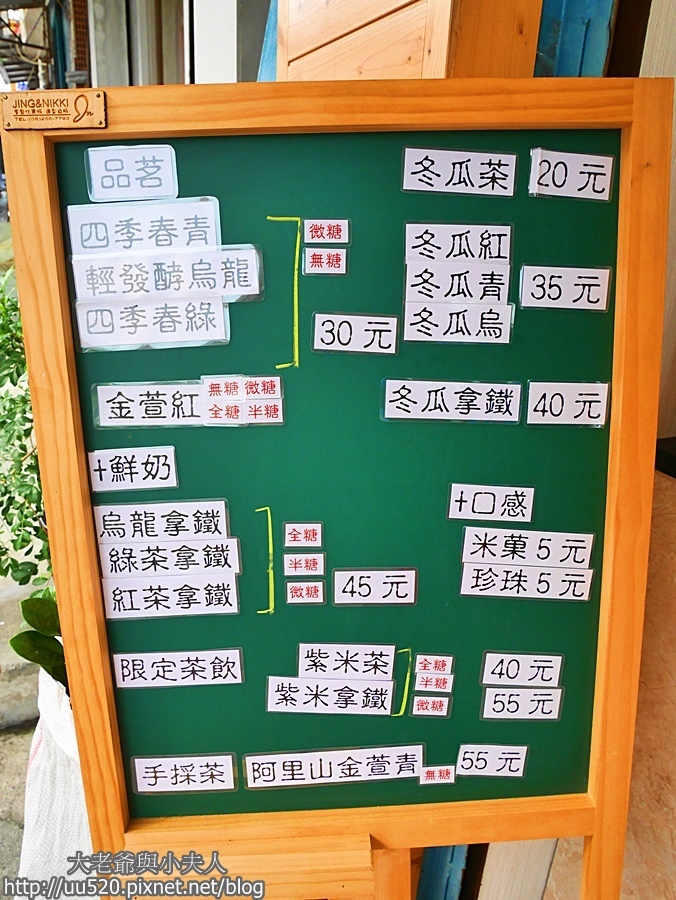 JING&NIKKI
品茗
四季春青
輕發酵烏龍
四季春綠
微糖
無糖
30 元
金萱紅
無糖 微糖
全糖 半糖
+鮮奶
烏龍拿鐵
綠茶拿鐵
紅茶拿鐵
全糖
半糖
微糖
45 元
冬瓜茶 20 元
冬瓜紅
冬瓜青
冬瓜烏
35 元
冬瓜拿鐵 40 元
+口感
米菓 5 元
珍珠 5 元
限定茶飲
紫米茶
紫米拿鐵
全糖
半糖
微糖
40 元
55 元
手採茶 阿里山金萱青 無糖 55 元
大老爺與小夫人
http://uu520.pixnet.net/blog